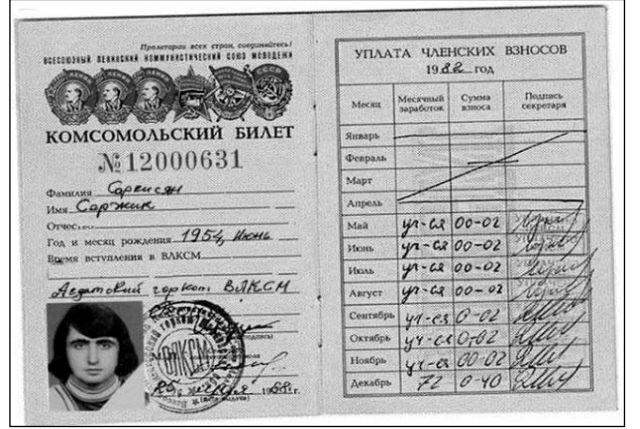 Пролетарии всех стран, соединяйтесь!
ВСЕСОЮЗНЫЙ ЛЕНИНСКИЙ КОММУНИСТИЧЕСКИЙ СОЮЗ МОЛОДЕЖИ
КОМСОМОЛЬСКИЙ БИЛЕТ
№ 12000631
Фамилия Саркисян
Имя Саржик
Отчество
Год и месяц рождения 1954, Июнь
Время вступления в ВЛКСМ
горком ВЛКСМ
ВЛКСМ
25
УПЛАТА ЧЛЕНСКИХ ВЗНОСОВ
1982 год
Месяц Месячный заработок Сумма взноса Подпись секретаря
Январь
Февраль
Март
Апрель
Май уч-ся 00-02
Июнь уч-ся 00-02
Июль уч-ся 00-02
Август уч-ся 00-02
Сентябрь уч-ся 0-02
Октябрь уч-ся 0-02
Ноябрь уч-ся 00-02
Декабрь 72 0-40